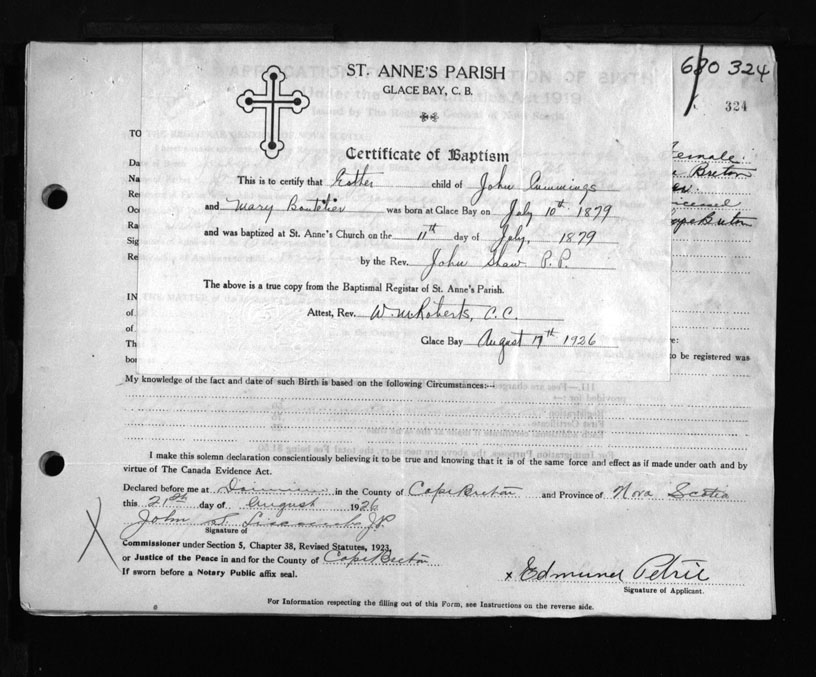 ST. ANNE'S PARISH
GLACE BAY, C. B.
680 324
324
Certificate of Baptism
This is to certify that Esther child of John Cummings
and Mary Boutelier was born at Glace Bay on July 10th 1879
and was baptized at St. Anne's Church on the 11th day of July, 1879
by the Rev. John Shaw P. P.
The above is a true copy from the Baptismal Registar of St. Anne's Parish.
Attest, Rev. W. McRoberts, C. C.
Glace Bay August 17th 1926
TO
Da
Na
Re
Oc
Ra
Sig
Re
IN
of
of
Th
bor
Female.
Breton
Cape Breton
to be registered was
My knowledge of the fact and date of such Birth is based on the following Circumstances:—
I make this solemn declaration conscientiously believing it to be true and knowing that it is of the same force and effect as if made under oath and by
virtue of The Canada Evidence Act.
Declared before me at Dominion in the County of Cape Breton and Province of Nova Scotia
this 21st day of August 1926
John J.P.
Signature of
Commissioner under Section 5, Chapter 38, Revised Statutes, 1923,
or Justice of the Peace in and for the County of Cape Breton
If sworn before a Notary Public affix seal.
x Edmund Petrie
Signature of Applicant.
For Information respecting the filling out of this Form, see Instructions on the reverse side.